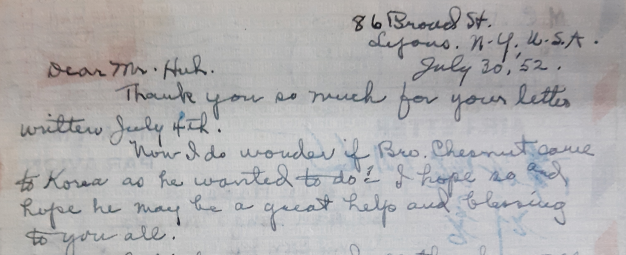 86 Broad St.
Lyons. N.Y. U.S.A.
July 30, '52.
Dear Mr. Huh.
Thank you so much for your letter
written July 4th.
Now I do wonder if Bro. Chesnut came
to Korea as he wanted to do? I hope so and
hope he may be a great help and blessing
to you all.